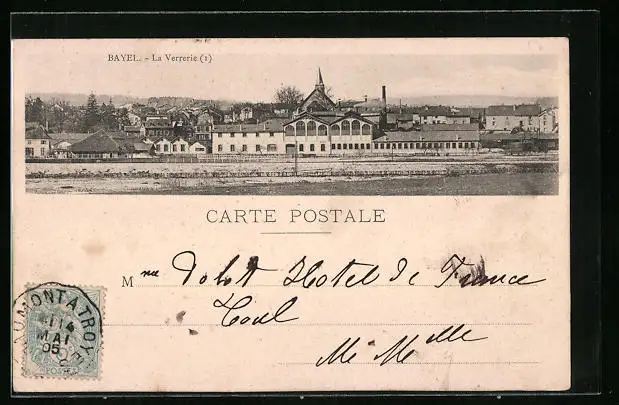 BAYEL. - La Verrerie (1)
CARTE POSTALE
Mme Dolot Hotel de France
Toul
Me Me Me
AUMONT A TROYES
MAI
05
POSTES